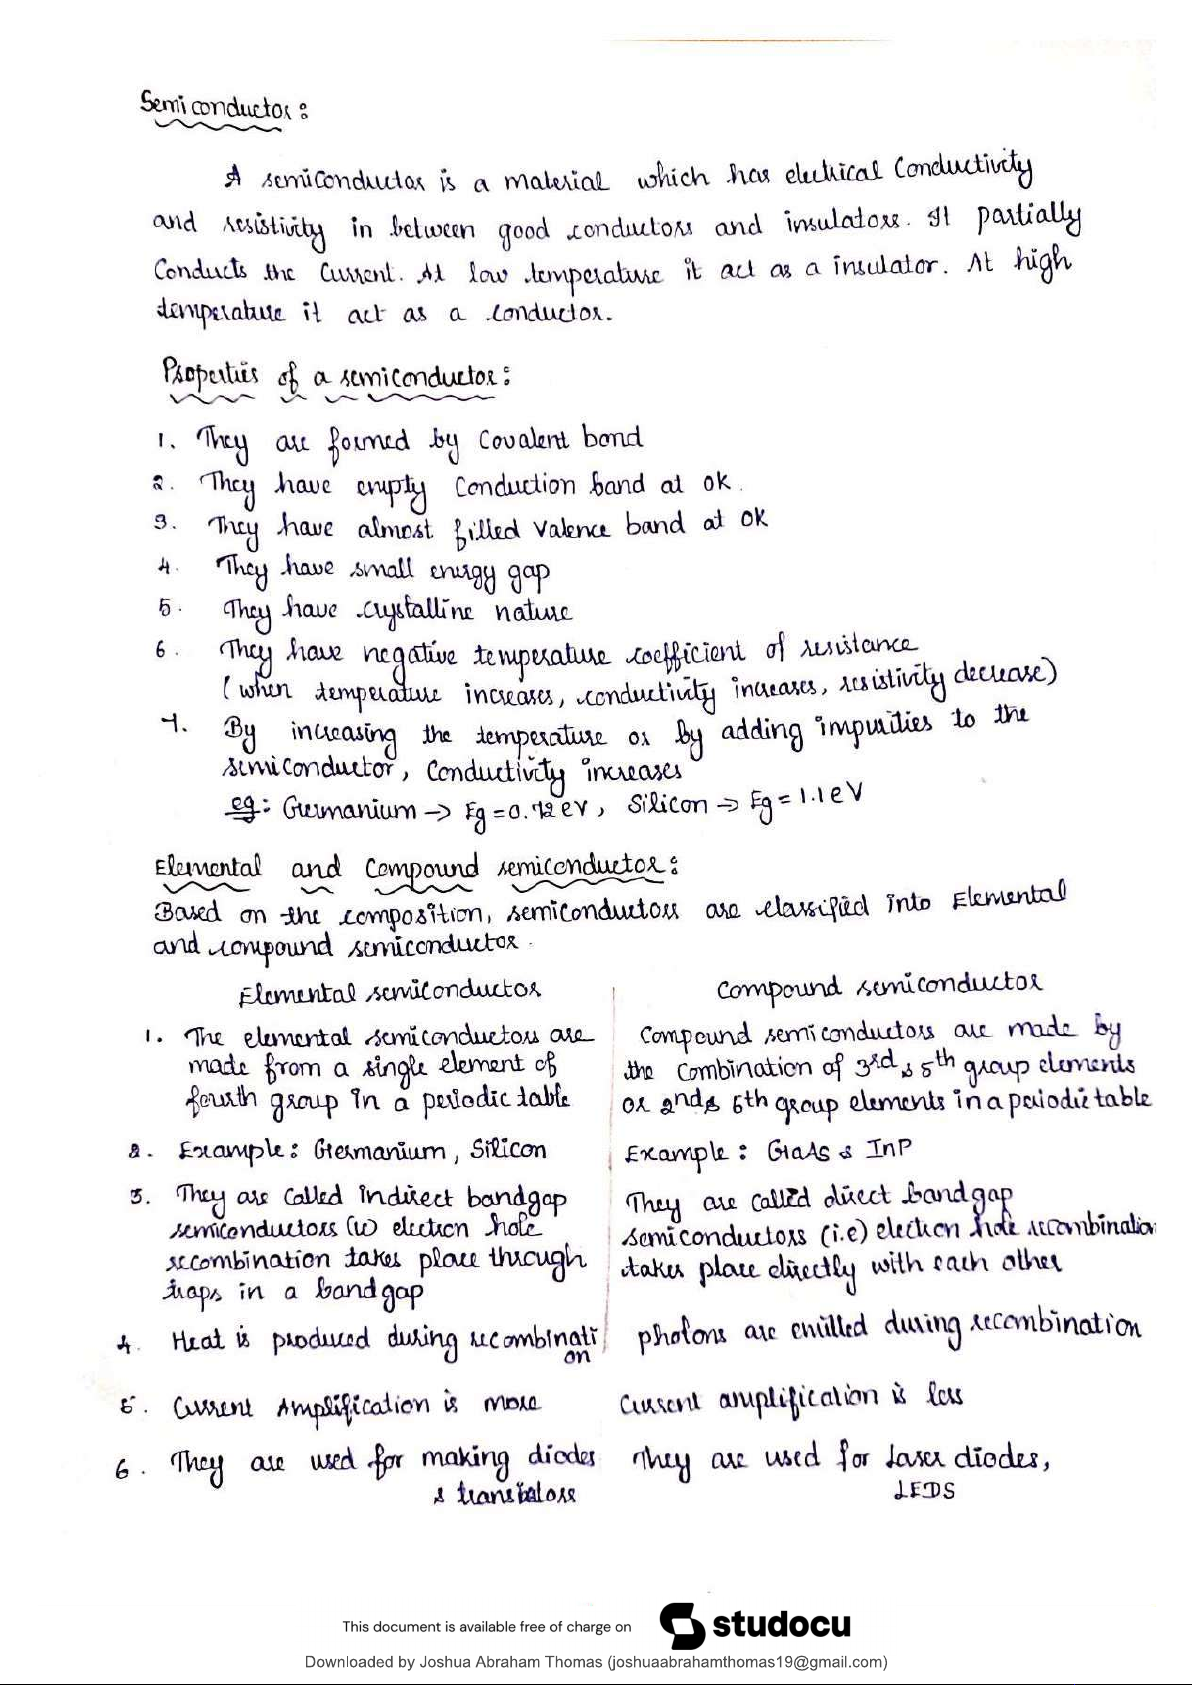 Semiconductor:
A semiconductor is a material which has electrical Conductivity
and resistivity in between good conductors and insulators. It partially
Conducts the Current. At low temperature it act as a insulator. At high
temperature it act as a conductor.
Properties of a semiconductor:
1. They are formed by Covalent bond
2. They have empty Conduction band at 0K.
3. They have almost filled Valence band at 0K
4. They have small energy gap
5. They have crystalline nature
6. They have negative temperature coefficient of resistance
(when temperature increases, conductivity increases, resistivity decrease)
7. By increasing the temperature or by adding impurities to the
semiconductor, Conductivity increases
eg: Germanium → Eg = 0.72 eV, Silicon → Eg = 1.1 eV
Elemental and Compound semiconductor:
Based on the composition, semiconductors are classified into Elemental
and compound semiconductor.
Elemental semiconductor
Compound semiconductor
1. The elemental semiconductors are
made from a single element of
fourth group in a periodic table
Compound semiconductors are made by
the combination of 3rd & 5th group elements
or 2nd & 6th group elements in a periodic table
2. Example: Germanium, Silicon
Example: GaAs & InP
3. They are called indirect bandgap
semiconductors (ie) electron hole
recombination takes place through
traps in a bandgap
They are called direct bandgap
semiconductors (i.e) electron hole recombination
takes place directly with each other
4. Heat is produced during recombinati
on
photons are emitted during recombination
5. Current Amplification is more
Current amplification is less
6. They are used for making diodes
& transistors
They are used for Laser diodes,
LEDS
This document is available free of charge on studocu
Downloaded by Joshua Abraham Thomas (joshuaabrahamthomas19@gmail.com)